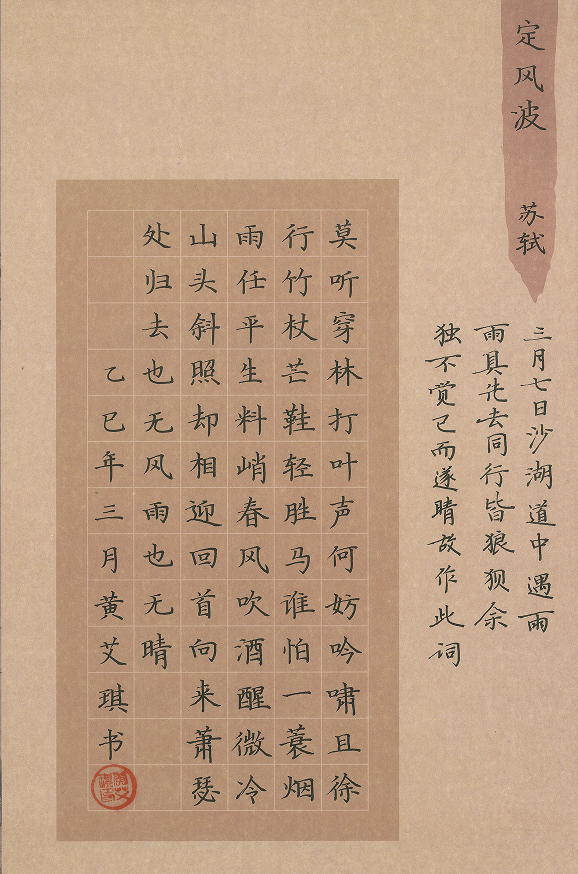 定风波 苏轼
三月七日沙湖道中遇雨
雨具先去同行皆狼狈余
独不觉已而遂晴故作此词
莫听穿林打叶声何妨吟啸且徐
行竹杖芒鞋轻胜马谁怕一蓑烟
雨任平生料峭春风吹酒醒微冷
山头斜照却相迎回首向来萧瑟
处归去也无风雨也无晴
乙巳年三月黄艾琪书